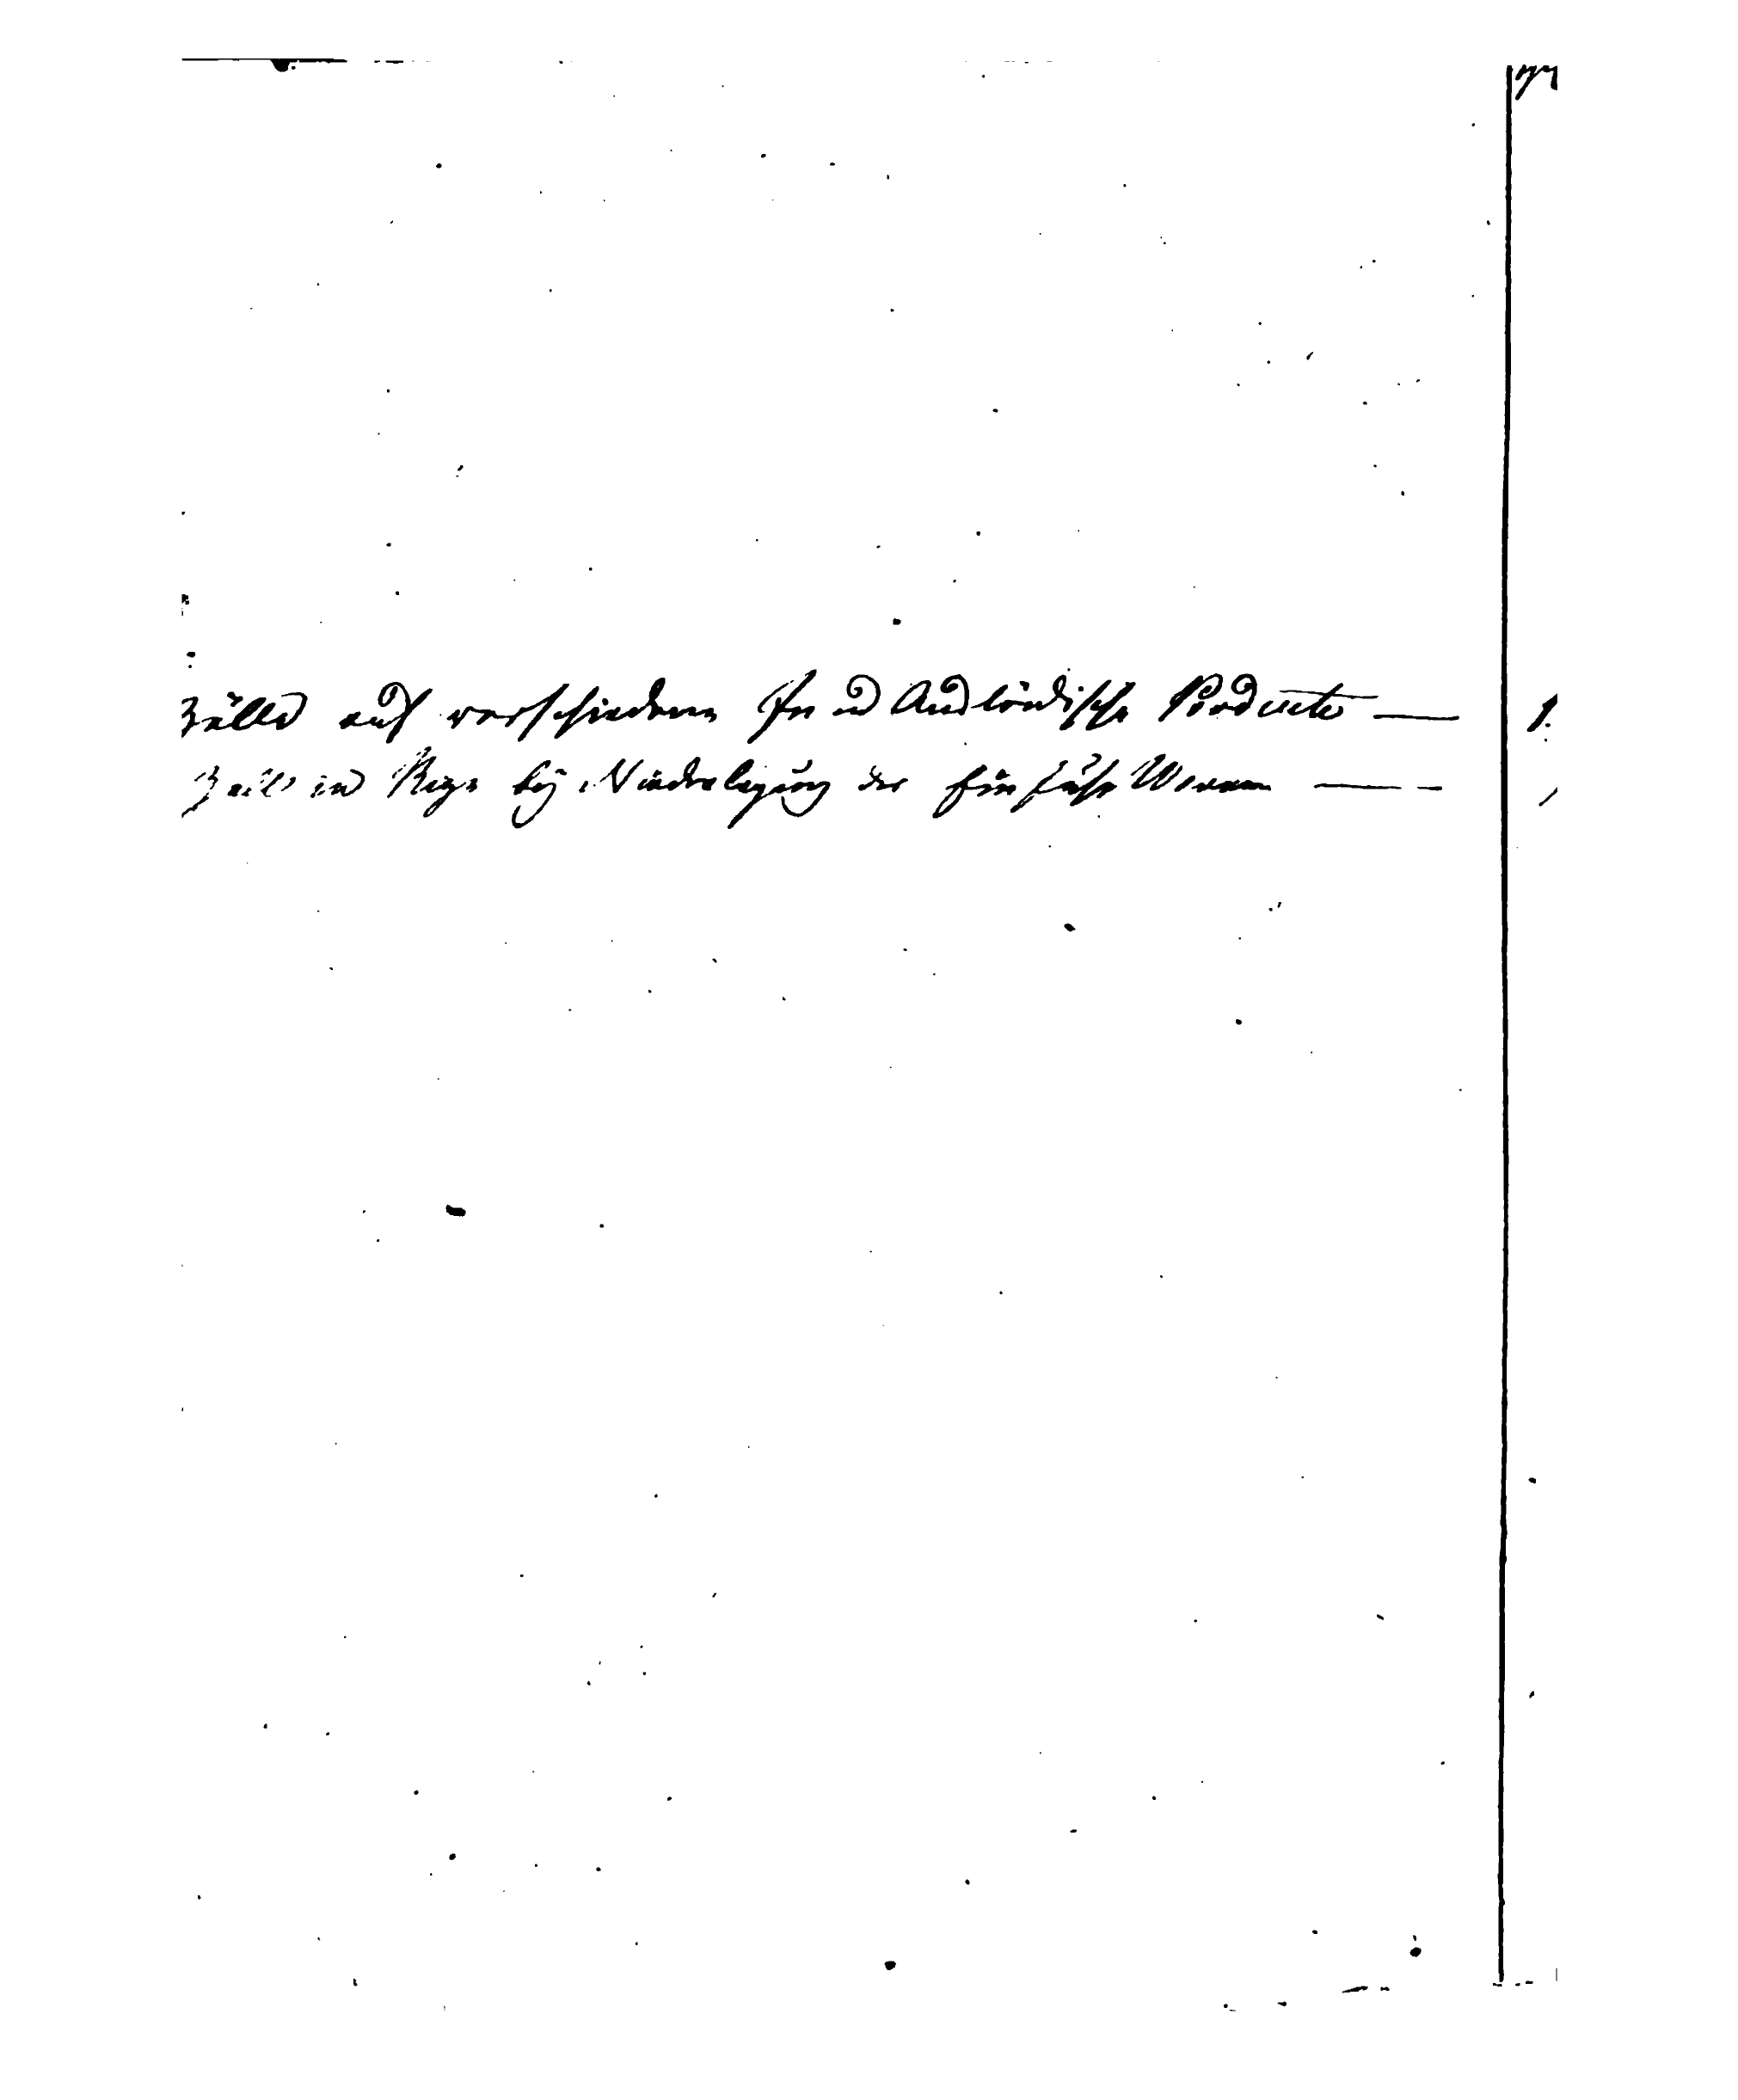 Zölle auf verschiedene In u Ausländische Producte — 1.
Zoll in Riga bey Niederlegung der Einfuhr Waaren —